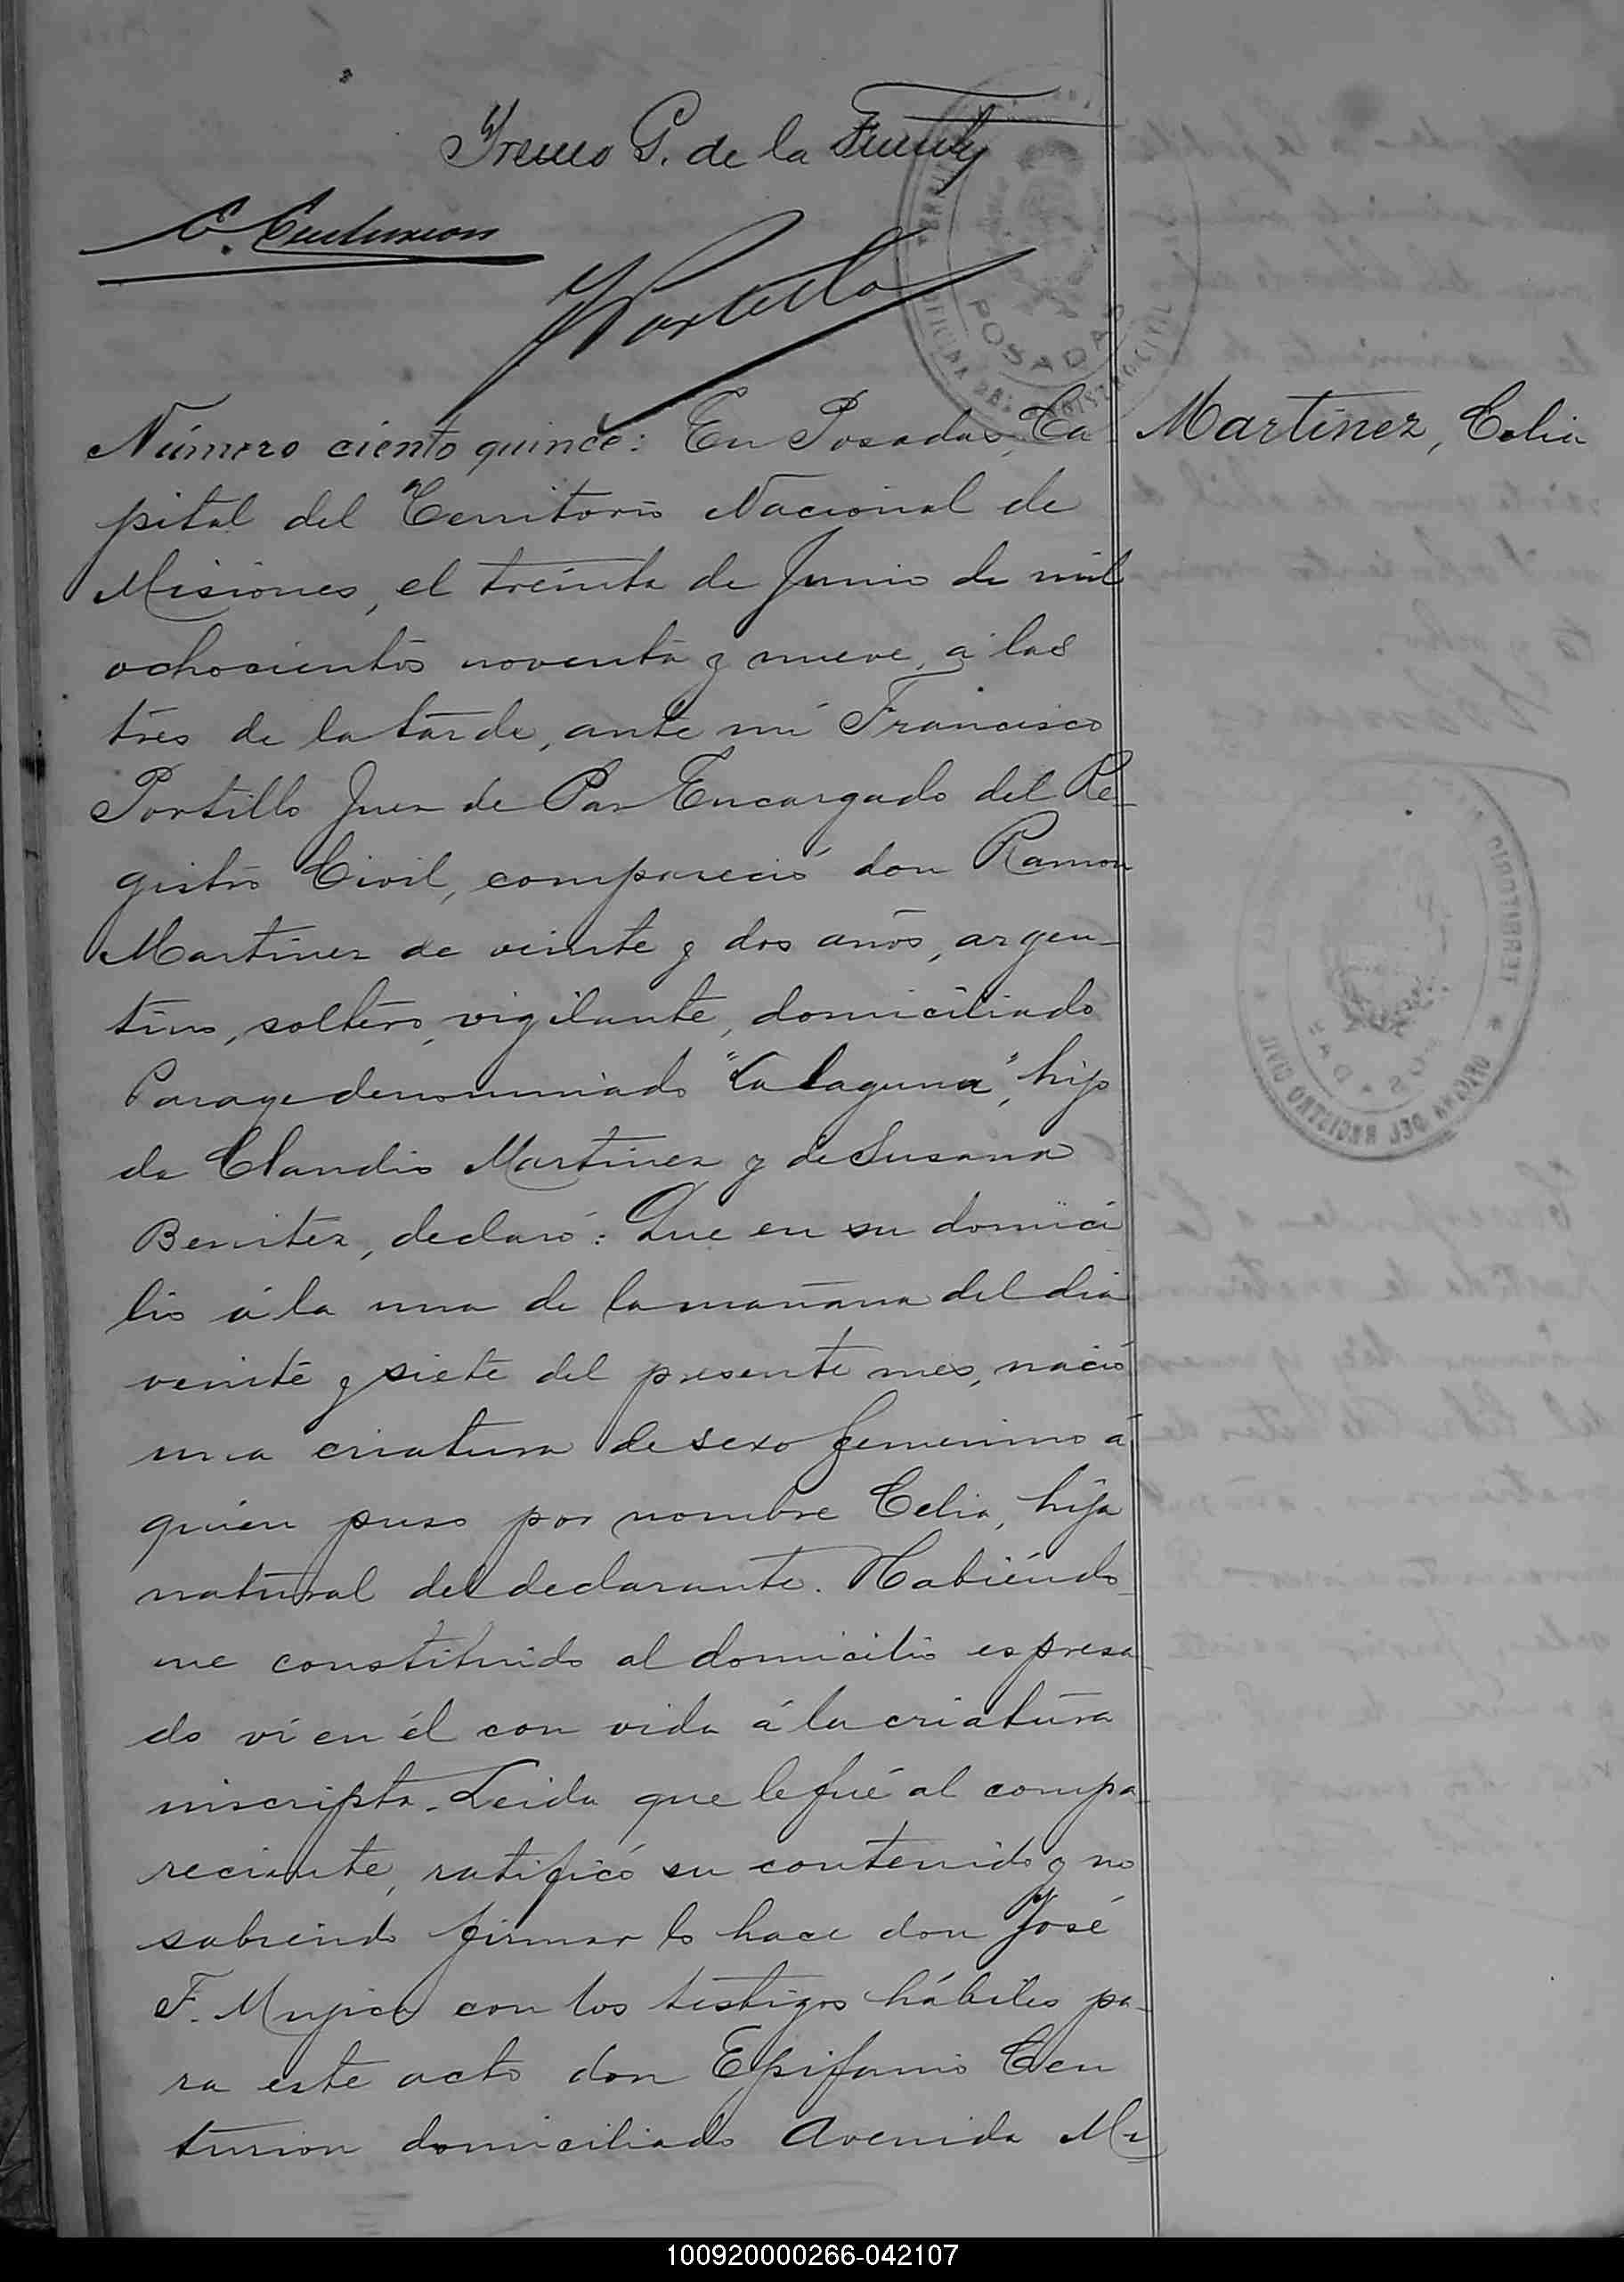 G. de la Fuente
E. Centurion
FPortillo
POSADAS
OFICINA DEL REGISTRO CIVIL
Número ciento quince: En Posadas, Ca-
Martinez, Celia
pital del Territorio Nacional de
Misiones, el treinta de Junio de mil
ochocientos noventa y nueve, á las
tres de la tarde, ante mi Francisco
Portillo Juez de Paz Encargado del Re-
gistro Civil, compareció don Ramon
Martinez de veinte y dos años, argen-
tino, soltero, vigilante, domiciliado
Parage denominado "La laguna", hijo
de Claudio Martinez y de Susana
Benitez, declaró: Que en su domici
lio á la una de la mañana del dia
veinte y siete del presente mes, nació
una criatura de sexo femenino á
quien puso por nombre Celia, hija
natural del declarante. Habiéndo-
me constituido al domicilio espresa-
do ví en él con vida á la criatura
inscripta. Leida que le fué al compa-
reciente, ratificó su contenido y no
sabiendo firmar lo hace don José
F. Mujica con los testigos hábiles pa-
ra este acto don Epifanio Cen
turion domiciliado Avenida Mi
TERRITORIO
OFICINA DEL REGISTRO CIVIL
POSADAS
100920000266-042107